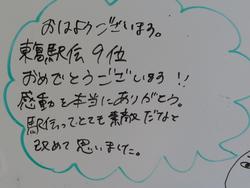 おはようございます。
東葛駅伝 9位
おめでとうございます!!
感動を本当にありがとう。
駅伝ってとても素敵だなと
改めて思いました。